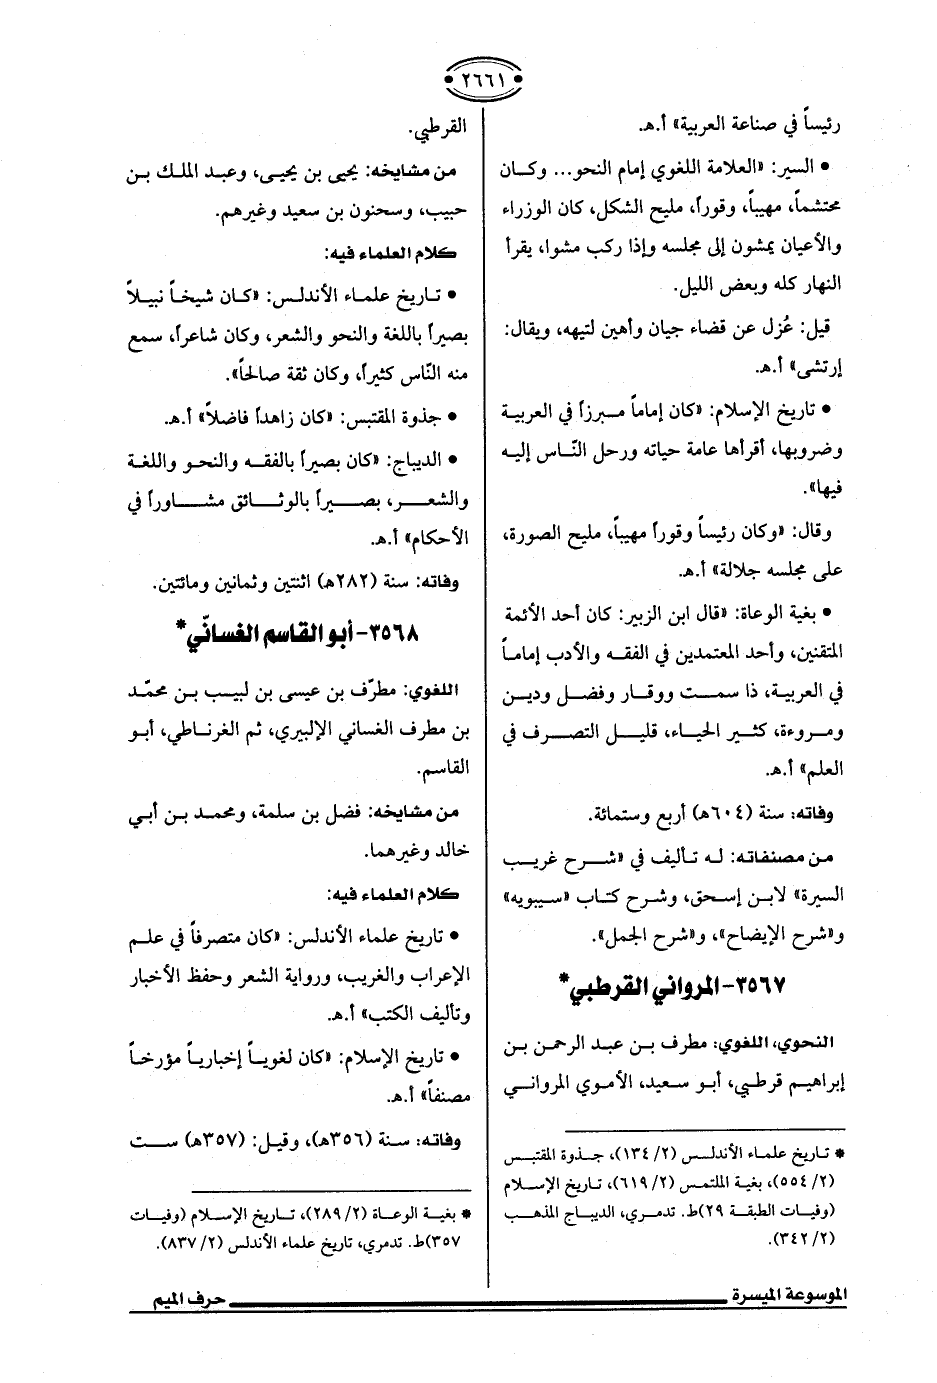 ٢٦٦١
رئيساً في صناعة العربية» أ.هـ.
• السير: «العلامة اللغوي إمام النحو... وكان
محتشماً، مهيباً، وقوراً، مليح الشكل، كان الوزراء
والأعيان يمشون إلى مجلسه وإذا ركب مشوا، يقرأ
النهار كله وبعض الليل.
قيل: عُزل عن قضاء جيان وأهين لتيهه، ويقال:
إرتشى» أ.هـ.
• تاريخ الإسلام: «كان إماماً مبرزاً في العربية
وضروبها، أقرأها عامة حياته ورحل النّاس إليه
فيها».
وقال: «وكان رئيساً وقوراً مهيباً، مليح الصورة،
على مجلسه جلالة» أ.هـ.
• بغية الوعاة: «قال ابن الزبير: كان أحد الأئمة
المتقنين، وأحد المعتمدين في الفقه والأدب إماماً
في العربية، ذا سمت ووقار وفضل ودين
ومروءة، كثير الحياء، قليل التصرف في
العلم» أ.هـ.
وفاته: سنة (٦٠٤هـ) أربع وستمائة.
من مصنفاته: له تأليف في «شرح غريب
السيرة» لابن إسحق، وشرح كتاب «سيبويه»
و«شرح الإيضاح»، و«شرح الجمل».
٣٥٦٧- المرواني القرطبي*
النحوي، اللغوي: مطرف بن عبد الرحمن بن
إبراهيم قرطبي، أبو سعيد، الأموي المرواني
* تاريخ علماء الأندلس (٢/ ١٣٤)، جذوة المقتبس
(٢/ ٥٥٤)، بغية الملتمس (٢/ ٦١٩)، تاريخ الإسلام
(وفيات الطبقة ٢٩)ط. تدمري، الديباج المذهب
(٢/ ٣٤٢).
القرطبي.
من مشايخه: يحيى بن يحيى، وعبد الملك بن
حبيب، وسحنون بن سعيد وغيرهم.
كلام العلماء فيه:
• تاريخ علماء الأندلس: «كان شيخاً نبيلاً
بصيراً باللغة والنحو والشعر، وكان شاعراً، سمع
منه النّاس كثيراً، وكان ثقة صالحاً».
• جذوة المقتبس: «كان زاهداً فاضلاً» أ.هـ.
• الديباج: «كان بصيراً بالفقه والنحو واللغة
والشعر، بصيراً بالوثائق مشاوراً في
الأحكام» أ.هـ.
وفاته: سنة (٢٨٢هـ) اثنتين وثمانين ومائتين.
٣٥٦٨- أبو القاسم الغسانّي*
اللغوي: مطرّف بن عيسى بن لبيب بن محمّد
بن مطرف الغساني الإلبيري، ثم الغرناطي، أبو
القاسم.
من مشايخه: فضل بن سلمة، ومحمد بن أبي
خالد وغيرهما.
كلام العلماء فيه:
• تاريخ علماء الأندلس: «كان متصرفاً في علم
الإعراب والغريب، ورواية الشعر وحفظ الأخبار
وتأليف الكتب» أ.هـ.
• تاريخ الإسلام: «كان لغوياً إخبارياً مؤرخاً
مصنفاً» أ.هـ.
وفاته: سنة (٣٥٦هـ)، وقيل: (٣٥٧هـ) ست
* بغية الوعاة (٢/ ٢٨٩)، تاريخ الإسلام (وفيات
٣٥٧)ط. تدمري، تاريخ علماء الأندلس (٢/ ٨٣٧).
الموسوعة الميسرة
حرف الميم